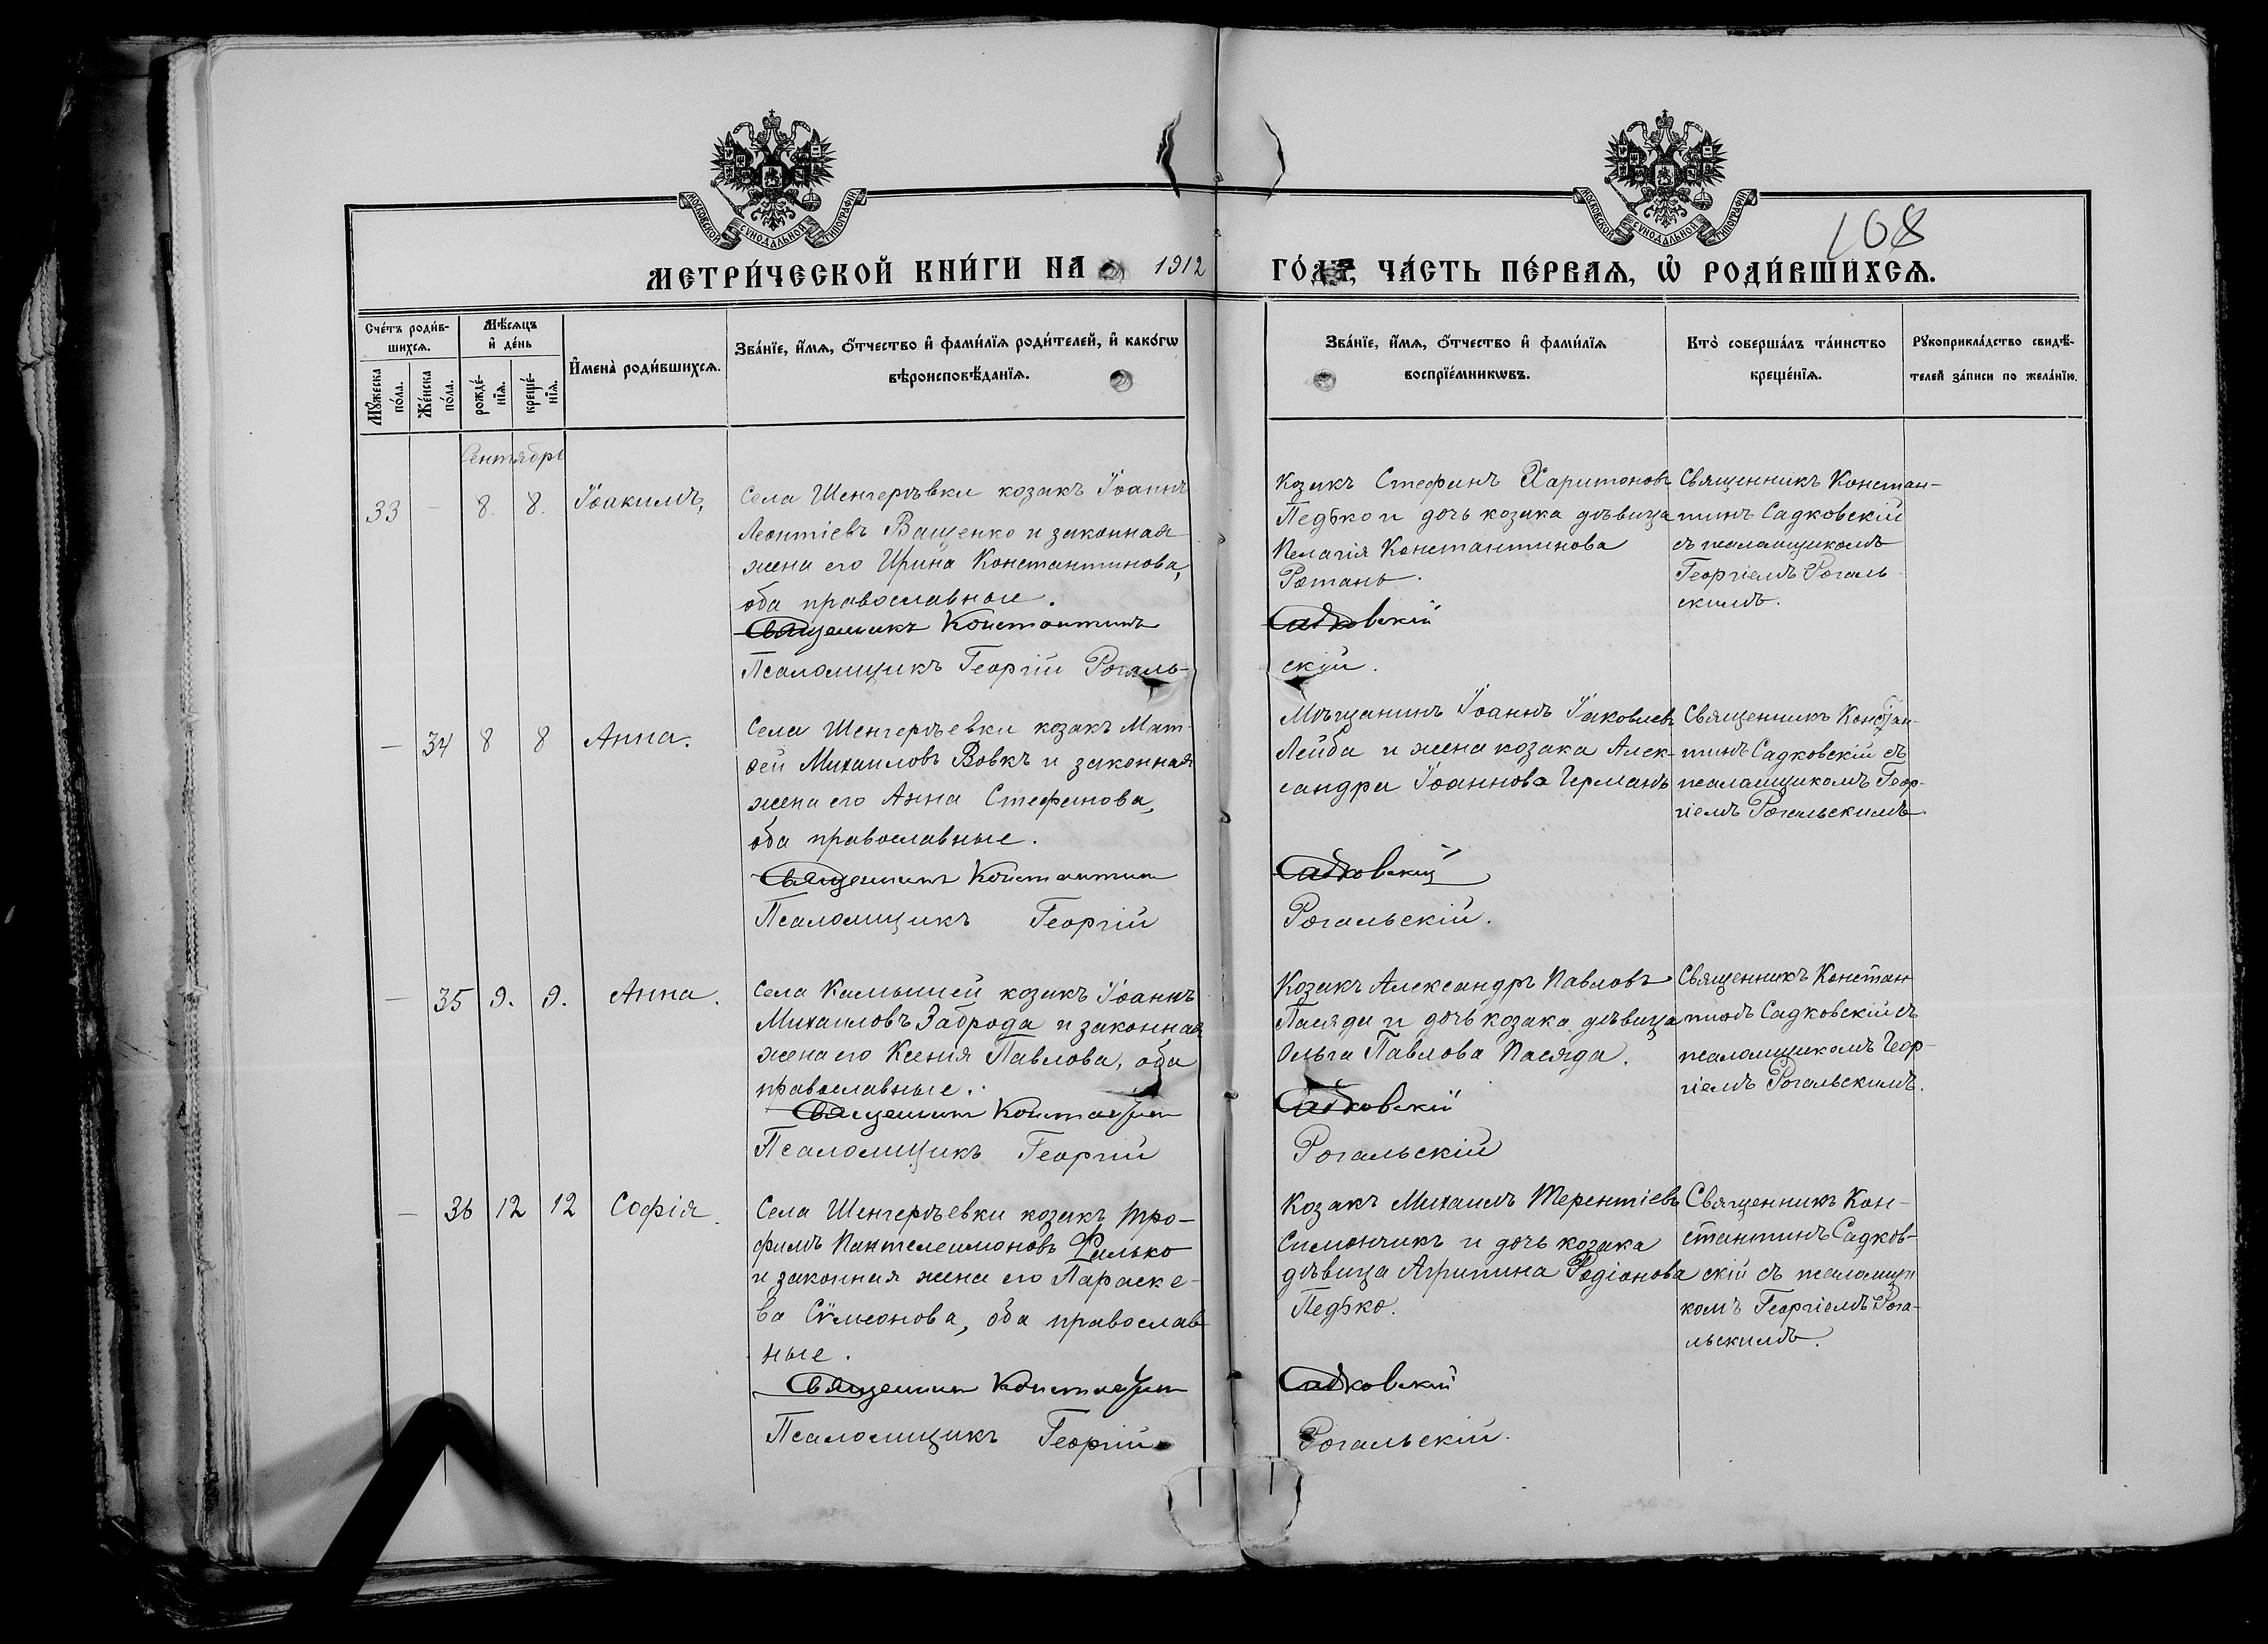 МОСКОВСКОЙ СѴНОДАЛЬНОЙ ТИПОГРАФІИ
МОСКОВСКОЙ СѴНОДАЛЬНОЙ ТИПОГРАФІИ
108
МЕТРИ́ЧЕСКОЙ КНИ́ГИ НА 1912
ГО́ДЪ, ЧА́СТЬ ПЕ́РВАЯ, Ѡ РОДИ́ВШИХСЯ.
Сче́тъ роди́в-
шихся.
Мѣ́сяцъ
и де́нь
Имена̀ роди́вшихся.
Зва́нїе, и́мя, ѻ́тчество и фами́лїя роди́телей, и како́гѡ
вѣроисповѣ́данїя.
Му́жеска
по́ла.
Же́нска
по́ла.
рожде́-
нїя.
креще́-
нїя.
Зва́нїе, и́мя, ѻ́тчество и фами́лїя
воспрїе́мникѡвъ.
Кто̀ соверша́лъ та́инство
креще́нїя.
Рꙋкоприкла́дство свидѣ́-
телей за́писи по жела́нїю.
Сентябрь
33 — 8. 8. Іоакимъ,
Села Шенгерѣвки козакъ Іоаннъ
Леонтіевъ Ващенко и законная
жена его Ирина Константинова,
оба православные.
Священникъ Константинъ
Псаломщикъ Георгій Рогаль-
Козакъ Стефанъ Харитоновъ
Педько и дочь козака дѣвица
Пелагія Константинова
Ротань.
Садковскій
скій.
Священникъ Констан-
тинъ Садковскій
съ псаломщикомъ
Георгіемъ Рогаль
скимъ.
— 34 8 8 Анна.
Села Шенгерѣевки козакъ Мат-
ѳей Михаиловъ Вовкъ и законная
жена его Анна Стефанова,
оба православные.
Священникъ Константинъ
Псаломщикъ Георгій
Мѣщанинъ Іоаннъ Іаковлевъ
Лейба и жена козака Алек-
сандра Іоаннова Германъ
Садковскій
Рогальскій.
Священникъ Констан-
тинъ Садковскій съ
псаломщикомъ Геор-
гіемъ Рогальскимъ.
— 35 9. 9. Анна.
Села Камышей козакъ Іоаннъ
Михаиловъ Заброда и законная
жена его Ксенія Павлова, оба
православные.
Священникъ Константинъ
Псаломщикъ Георгій
Козакъ Александръ Павловъ
Пасяда и дочь козака дѣвица
Ольга Павлова Пасяда.
Садковскій
Рогальскій
Священникъ Констан
тинъ Садковскій съ
псаломщикомъ Геор-
гіемъ Рогальскимъ.
— 36 12 12 Софія.
Села Шенгерѣевки козакъ Тро-
фимъ Пантелеимоновъ Филько
и законная жена его Параске-
ва Сѵмеонова, оба православ
ные.
Священникъ Константинъ
Псаломщикъ Георгій
Козакъ Михаилъ Терентіевъ
Симончикъ и дочь козака
дѣвица Агрипина Родіонова
Педько.
Садковскій
Рогальскій.
Священникъ Кон-
стантинъ Садков-
скій съ псаломщи
комъ Георгіемъ Рога-
льскимъ.